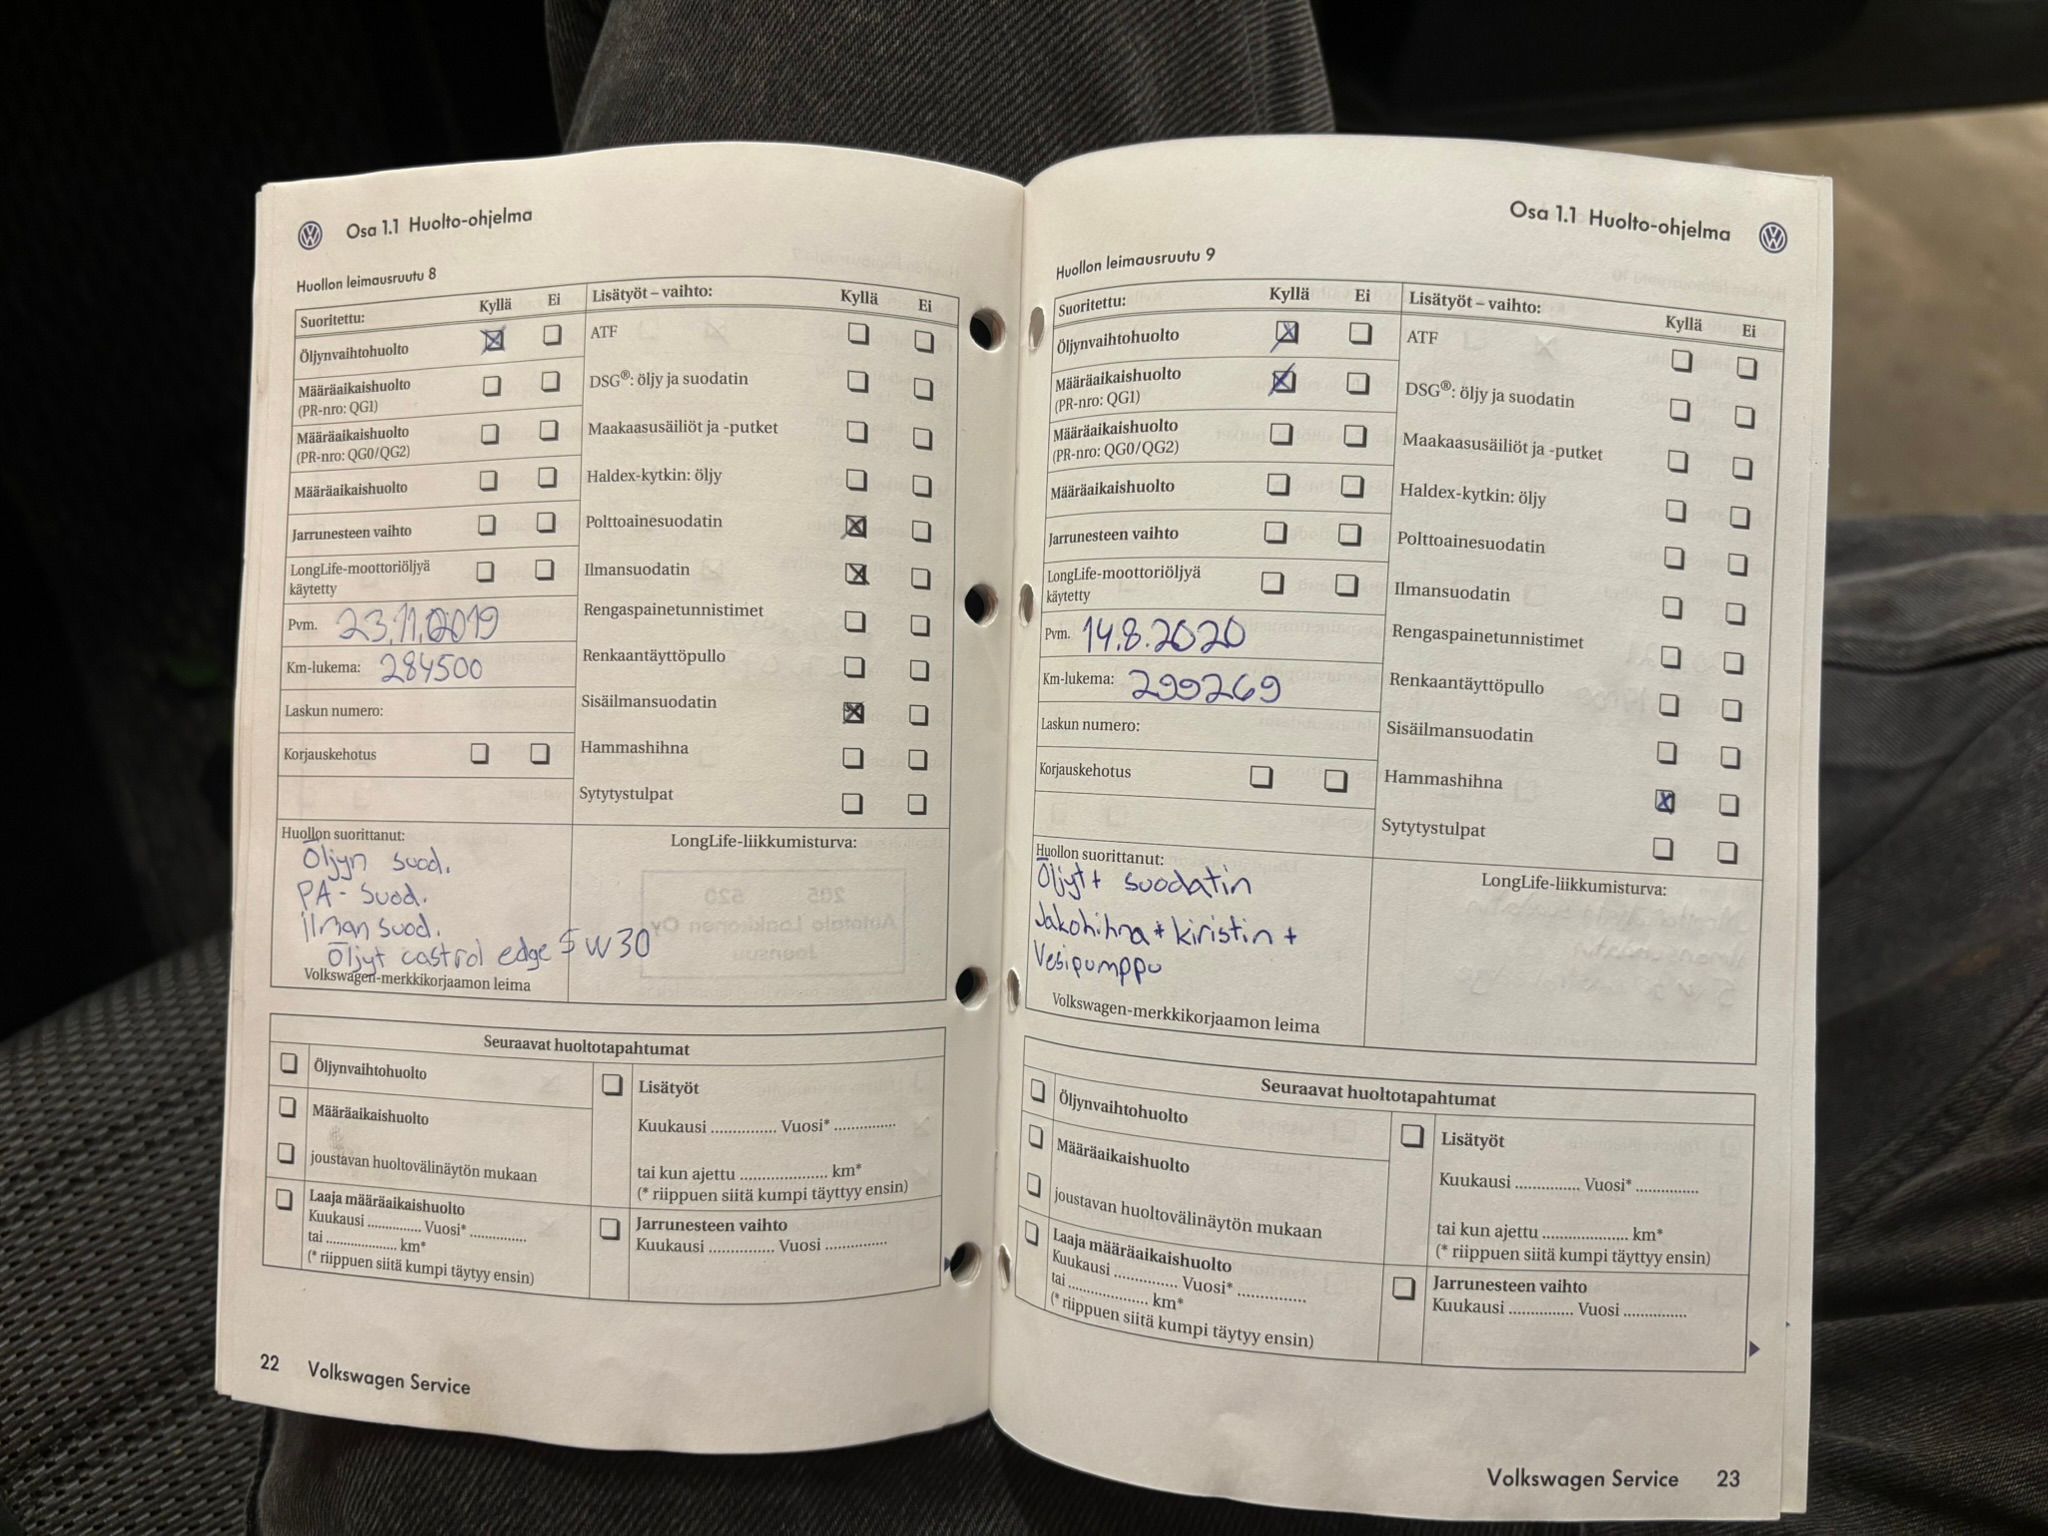 Osa 1.1 Huolto-ohjelma
Huollon leimausruutu 8
Suoritettu: Kyllä Ei
Öljynvaihtohuolto
Määräaikaishuolto
(PR-nro: QG1)
Määräaikaishuolto
(PR-nro: QG0/QG2)
Määräaikaishuolto
Jarrunesteen vaihto
LongLife-moottoriöljyä
käytetty
Pvm. 23.11.2019
Km-lukema: 284500
Laskun numero:
Korjauskehotus
Lisätyöt – vaihto: Kyllä Ei
ATF
DSG®: öljy ja suodatin
Maakaasusäiliöt ja -putket
Haldex-kytkin: öljy
Polttoainesuodatin
Ilmansuodatin
Rengaspainetunnistimet
Renkaantäyttöpullo
Sisäilmansuodatin
Hammashihna
Sytytystulpat
Huollon suorittanut:
Öljyn suod.
PA-suod.
ilman suod.
Öljyt castrol edge 5w30
Volkswagen-merkkikorjaamon leima
LongLife-liikkumisturva:
Seuraavat huoltotapahtumat
Öljynvaihtohuolto
Määräaikaishuolto
joustavan huoltovälinäytön mukaan
Laaja määräaikaishuolto
Kuukausi .............. Vuosi* ..............
tai .................. km*
(* riippuen siitä kumpi täytyy ensin)
Lisätyöt
Kuukausi ................ Vuosi* ...............
tai kun ajettu ...................... km*
(* riippuen siitä kumpi täyttyy ensin)
Jarrunesteen vaihto
Kuukausi ................ Vuosi ...............
22 Volkswagen Service
Osa 1.1 Huolto-ohjelma
Huollon leimausruutu 9
Suoritettu: Kyllä Ei
Öljynvaihtohuolto
Määräaikaishuolto
(PR-nro: QG1)
Määräaikaishuolto
(PR-nro: QG0/QG2)
Määräaikaishuolto
Jarrunesteen vaihto
LongLife-moottoriöljyä
käytetty
Pvm. 14.8.2020
Km-lukema: 299269
Laskun numero:
Korjauskehotus
Lisätyöt – vaihto: Kyllä Ei
ATF
DSG®: öljy ja suodatin
Maakaasusäiliöt ja -putket
Haldex-kytkin: öljy
Polttoainesuodatin
Ilmansuodatin
Rengaspainetunnistimet
Renkaantäyttöpullo
Sisäilmansuodatin
Hammashihna
Sytytystulpat
Huollon suorittanut:
Öljyt + suodatin
Jakohihna + kiristin +
Vesipumppu
Volkswagen-merkkikorjaamon leima
LongLife-liikkumisturva:
Seuraavat huoltotapahtumat
Öljynvaihtohuolto
Määräaikaishuolto
joustavan huoltovälinäytön mukaan
Laaja määräaikaishuolto
Kuukausi ................ Vuosi* ................
tai .................... km*
(* riippuen siitä kumpi täytyy ensin)
Lisätyöt
Kuukausi ................ Vuosi* ...............
tai kun ajettu ...................... km*
(* riippuen siitä kumpi täyttyy ensin)
Jarrunesteen vaihto
Kuukausi ................ Vuosi ...............
Volkswagen Service 23